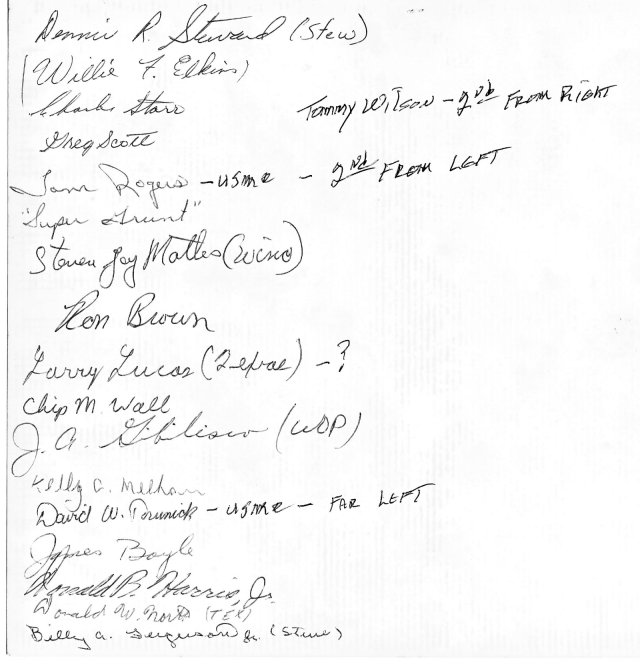 Dennis R. Steward (Stew)
(Willie F. Elkins)
Charles Starr
Tommy Wilson - 2nd FROM RIGHT
Greg Scott
Sam Rogers - USMC - 2nd FROM LEFT
"Super Grunt"
Steven Jay Mattes (Wino)
Ron Brown
Larry Lucas (Texas) - ?
Chip M. Wall
J. A. Gibilisco (WOP)
Kelly C. Melham
David W. - USMC - FAR LEFT
James Boyle
Ronald B. Harris, Jr.
Donald W. North (TEX)
Billy A. Ferguson Jr. (Steve)